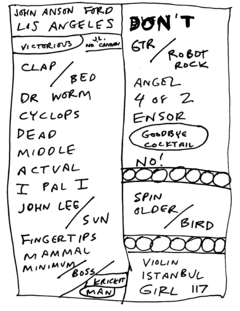 JOHN ANSON FORD
LOS ANGELES
VICTORIOUS
J.L.
NO CANDY
CLAP / BED
DR WORM
CYCLOPS
DEAD
MIDDLE
ACTUAL
I PAL I
JOHN LEE / SUN
FINGERTIPS
MAMMAL
MINIMUM / BOSS
KRICKIT
MAN
DON'T
GTR / ROBOT
ROCK
ANGEL
4 OF 2
ENSOR
GOODBYE
COCKTAIL
NO!
SPIN
OLDER / BIRD
VIOLIN
ISTANBUL
GIRL 117